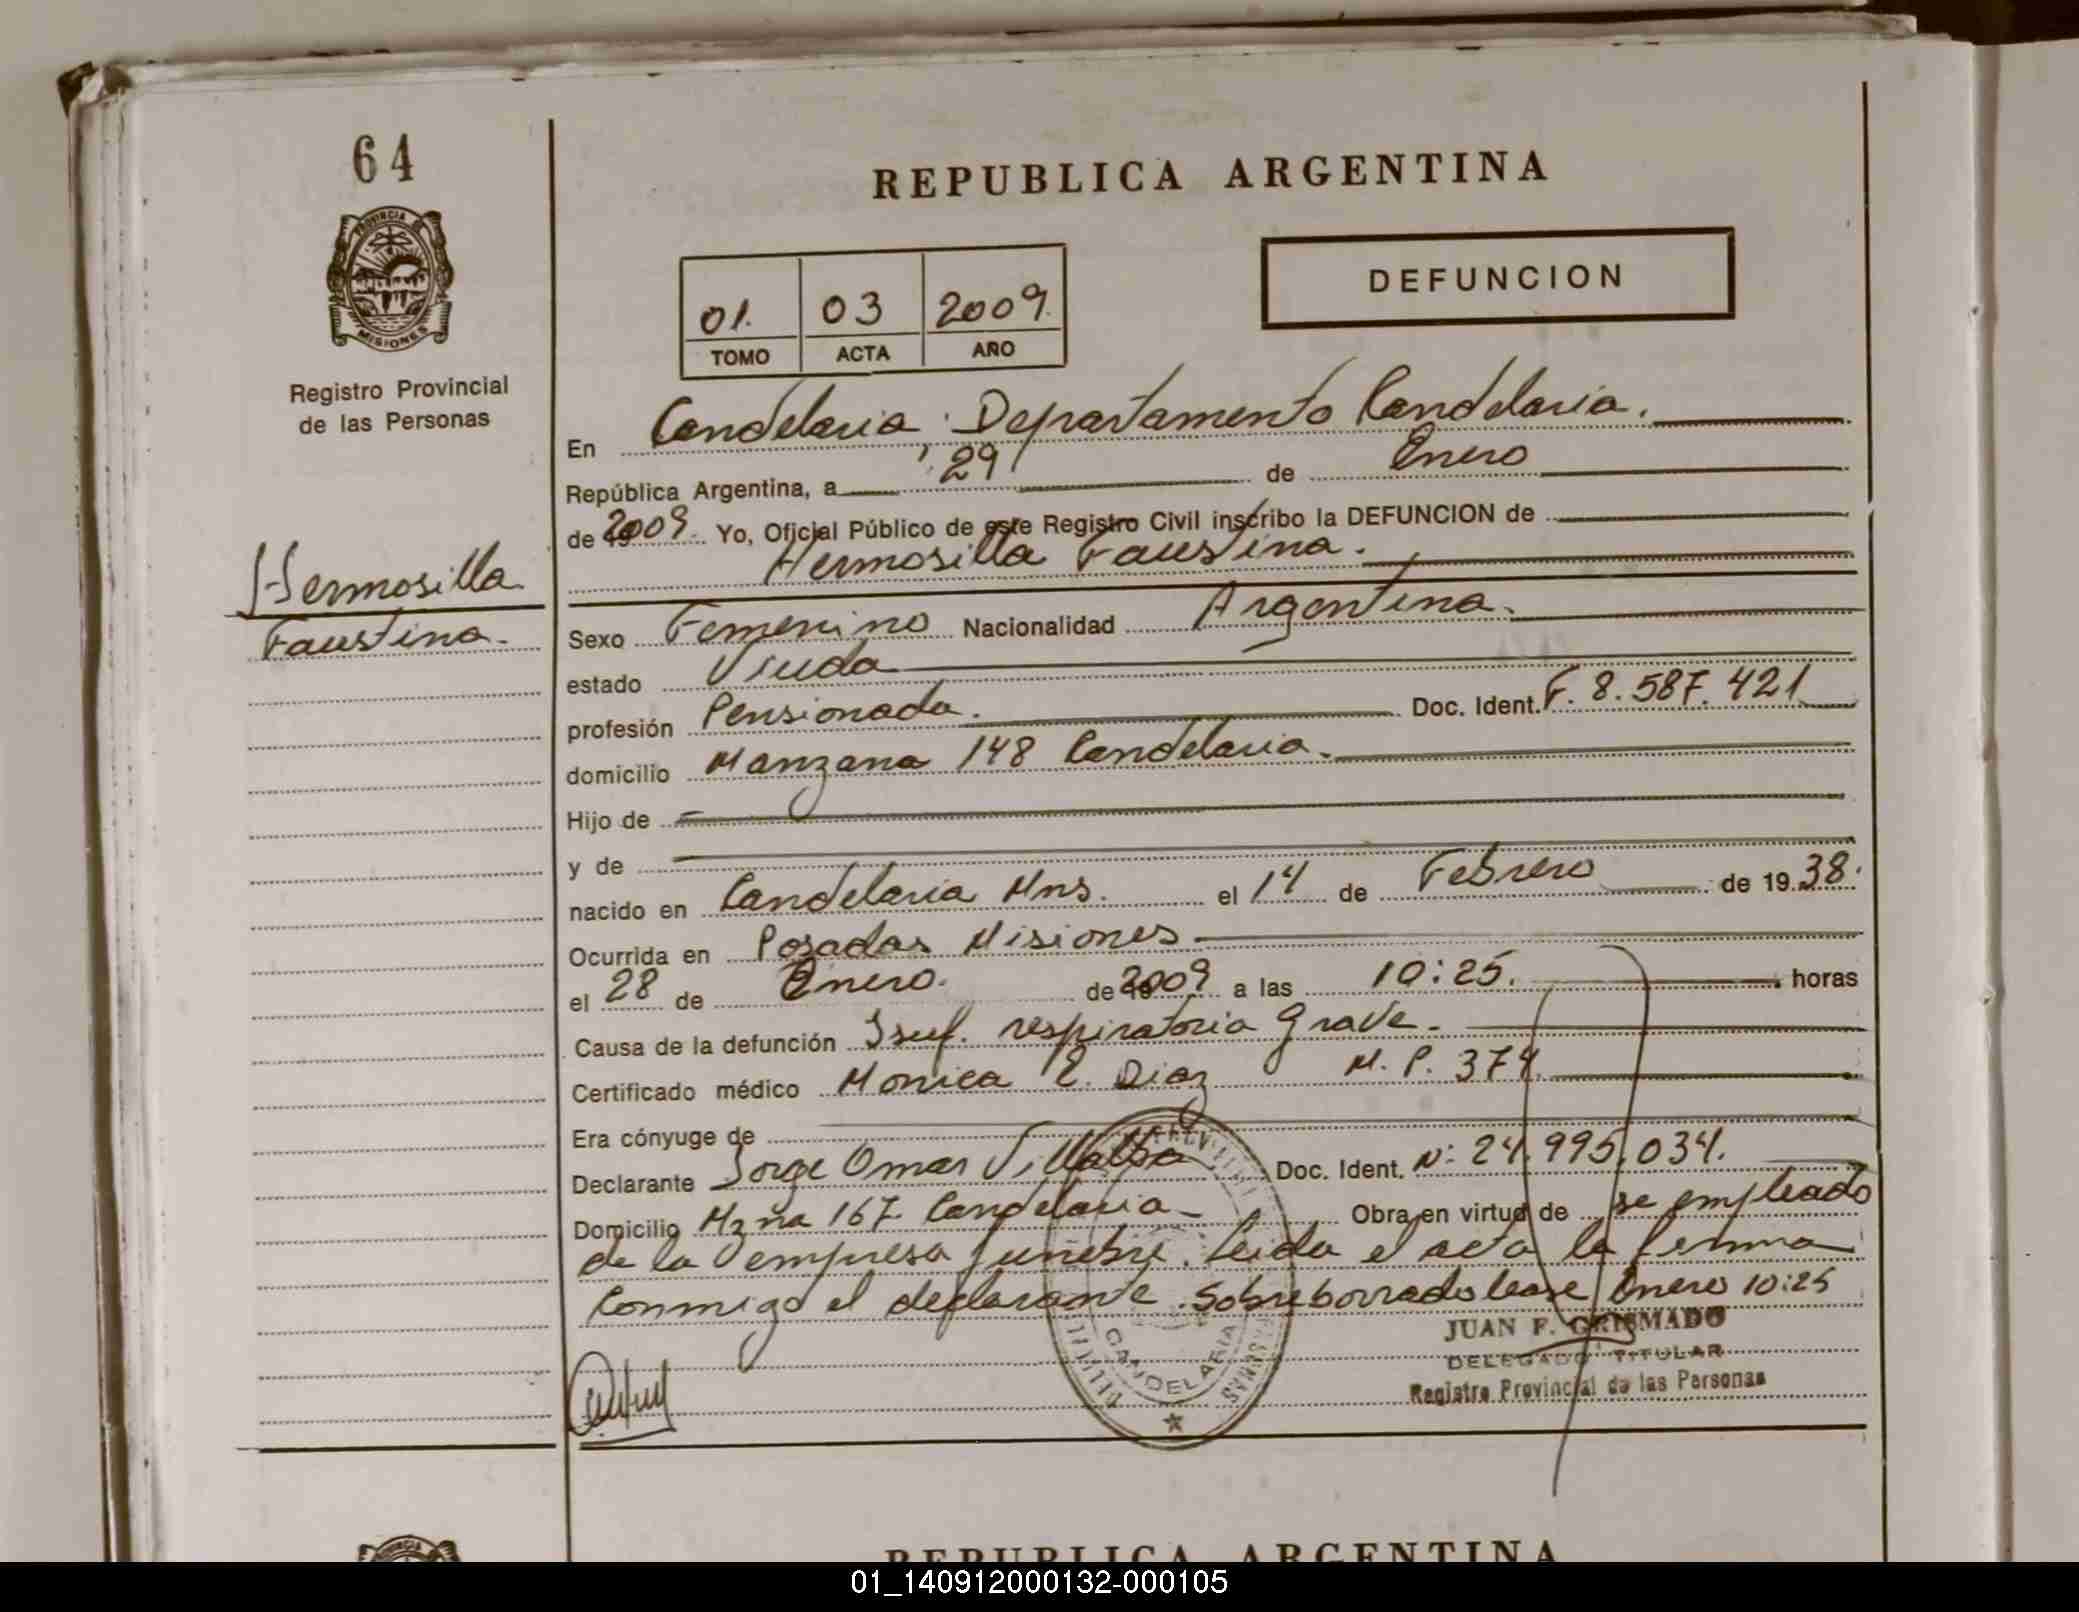 64
PROVINCIA DE
MISIONES
Registro Provincial
de las Personas
Hermosilla
Faustina.
REPUBLICA ARGENTINA
DEFUNCION
01. 03 2009.
TOMO ACTA AÑO
En Candelaria Departamento Candelaria.
República Argentina, a 29 de Enero
de 2009. Yo, Oficial Público de este Registro Civil inscribo la DEFUNCION de
Hermosilla Faustina.
Sexo Femenino Nacionalidad Argentina.
estado Viuda
profesión Pensionada. Doc. Ident. F. 8.587.421
domicilio Manzana 148 Candelaria.
Hijo de
y de
nacido en Candelaria Mns. el 14 de Febrero de 1938.
Ocurrida en Posadas Misiones
el 28 de Enero. de 2009 a las 10:25. horas
Causa de la defunción Isuf. respiratoria grave.
Certificado médico Monica E. Diaz M. P. 374.
Era cónyuge de
Declarante Jorge Omar Villalba Doc. Ident. Nº: 24.995.034.
Domicilio Mzna 167 Candelaria Obra en virtud de se empleado
de la empresa funebre. Leida el acta la firma
conmigo el declarante. Sobreborrado lease Enero 10:25
CANDELARIA
JUAN F. GRISMADO
DELEGADO TITULAR
Registro Provincial de las Personas
REPUBLICA ARGENTINA
01_140912000132-000105